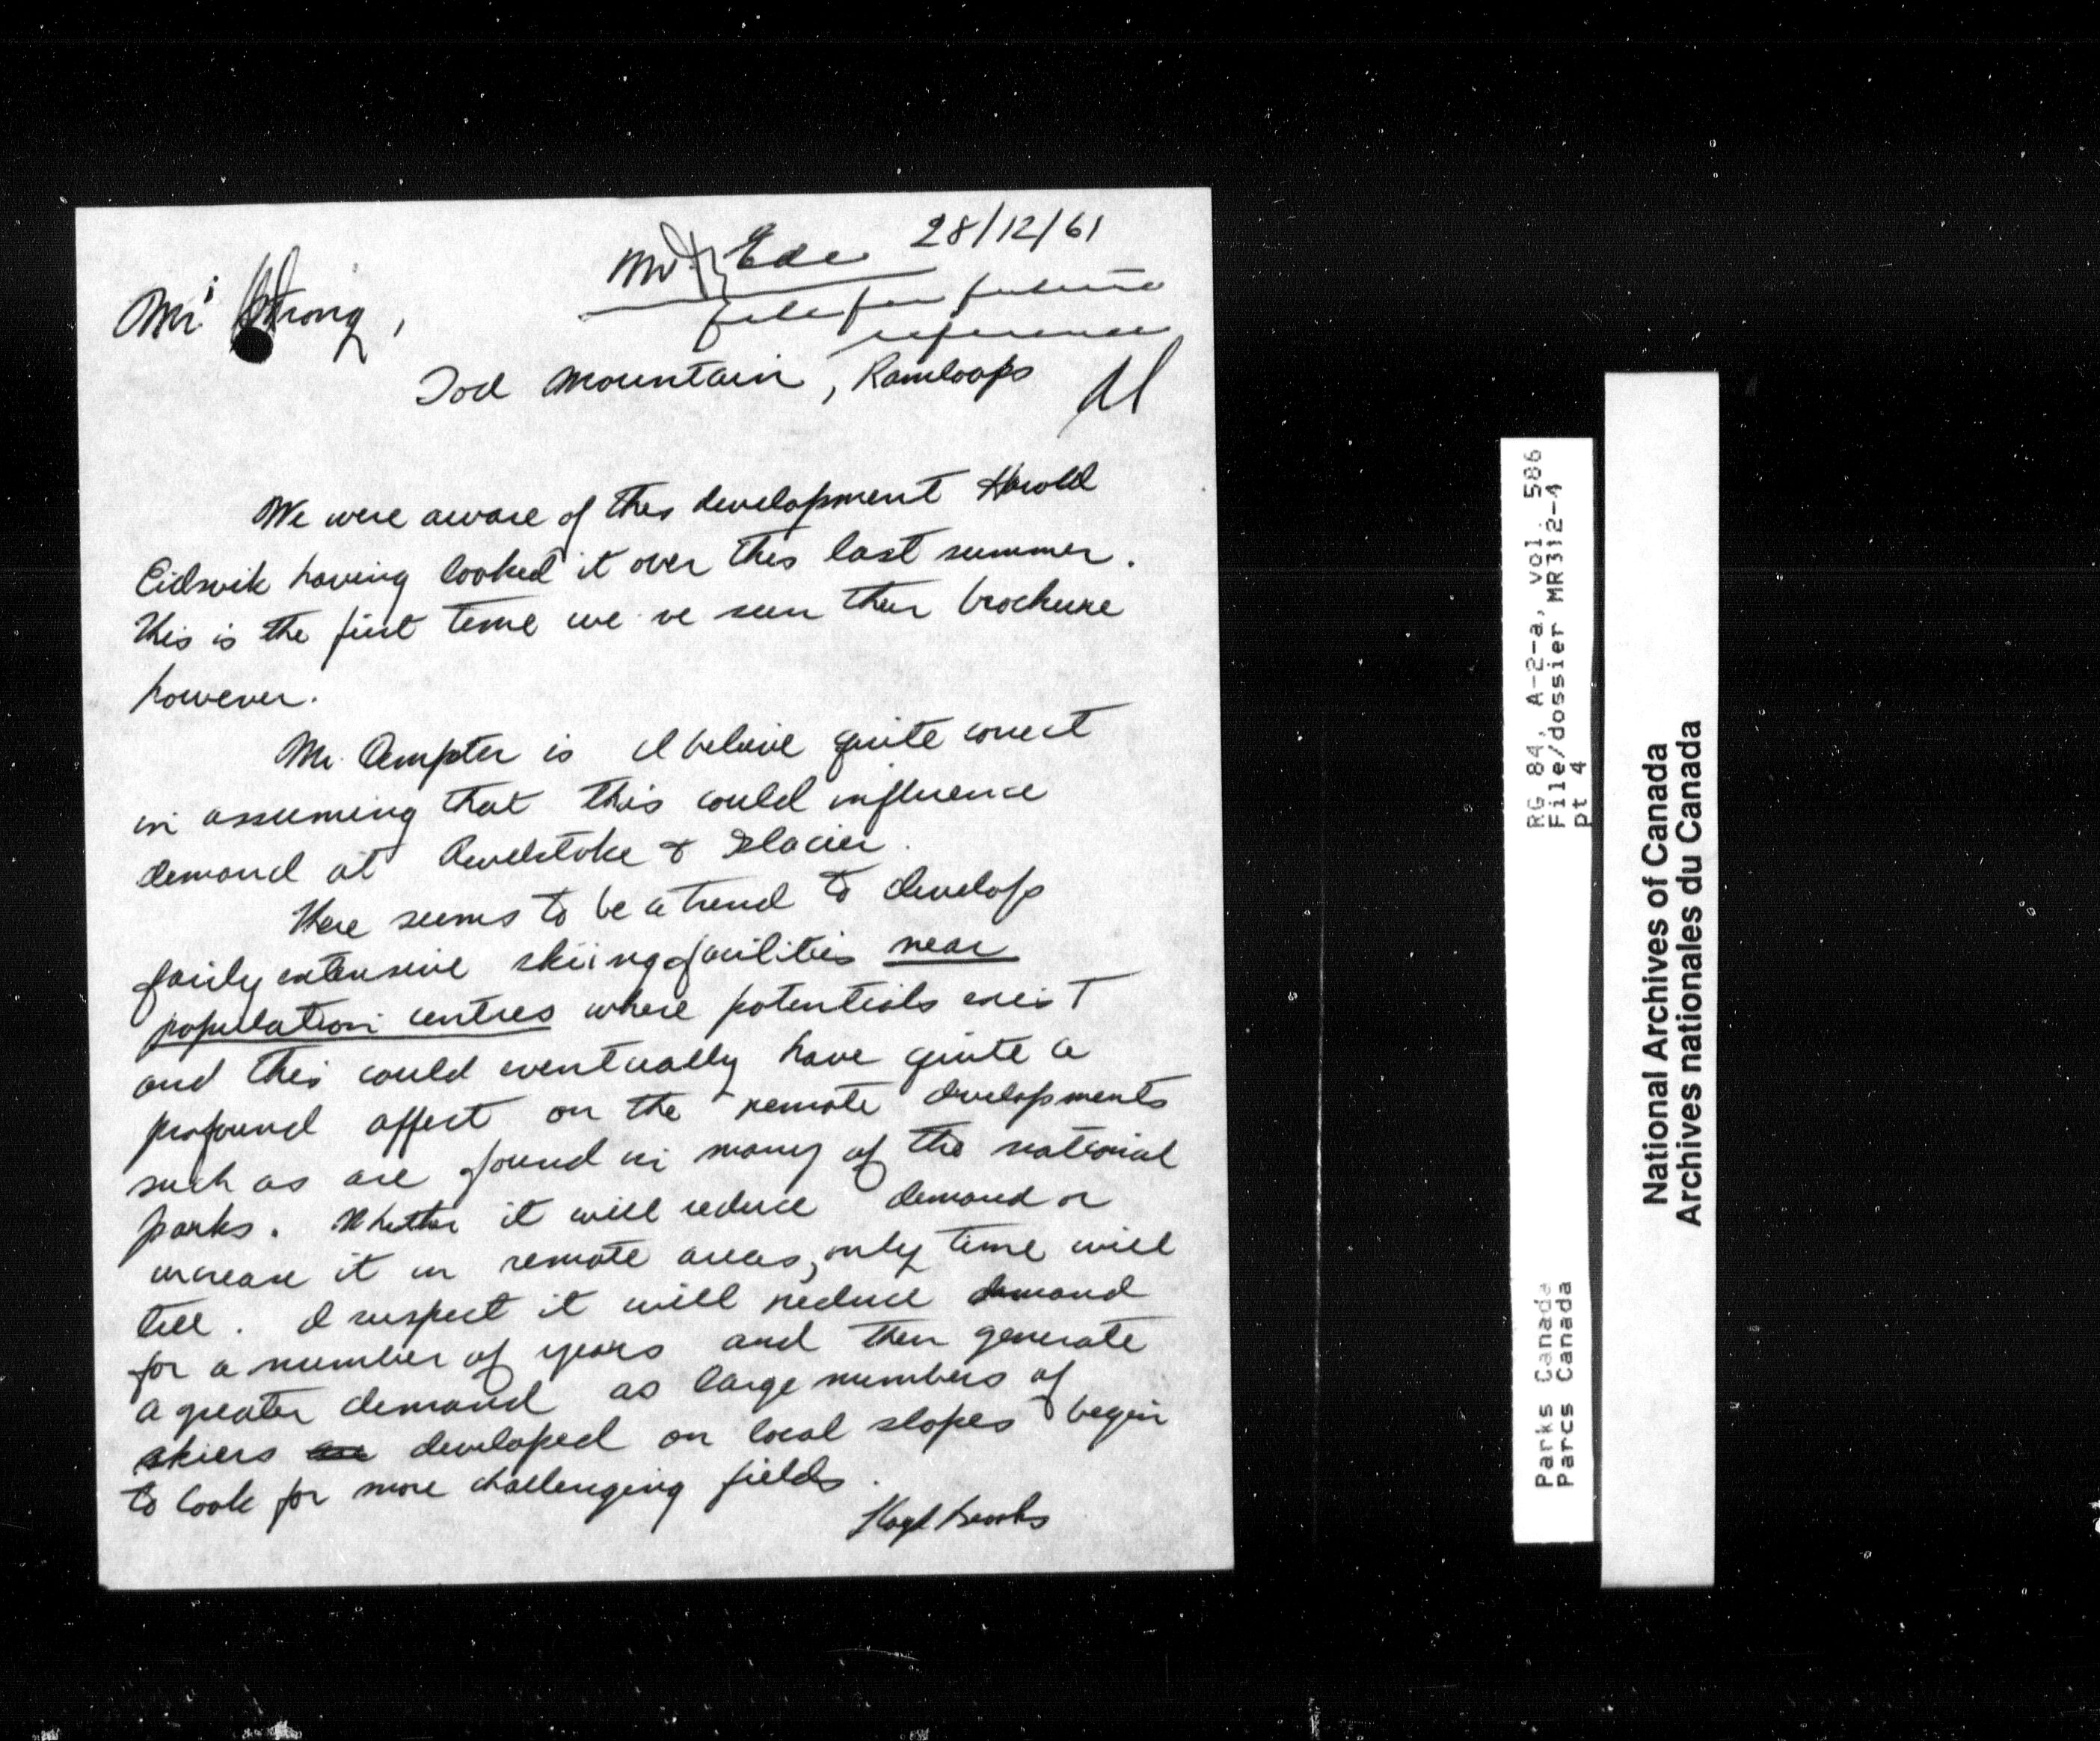 28/12/61
Mr. Ede
file for future
reference
Mr. Strong,
Tod Mountain, Kamloops
We were aware of this development Harold
Eidsvik having looked it over this last summer.
This is the first time we've seen their brochure
however.
Mr. is I believe quite correct
in assuming that this could influence
demand at Revelstoke & Glacier.
There seems to be a trend to develop
fairly extensive skiing facilities near
population centres where potentials exist
and this could eventually have quite a
profound affect on the remote developments
such as are found in many of the national
parks. Whether it will reduce demand or
increase it in remote areas, only time will
tell. I suspect it will reduce demand
for a number of years and then generate
a greater demand as large numbers of
skiers developed on local slopes begin
to look for more challenging fields.
RG 84, A-2-a, vol. 586
File/dossier MR312-4
pt 4
Parks Canada
Parcs Canada
National Archives of Canada
Archives nationales du Canada